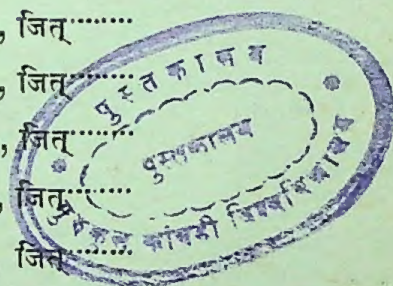 , जित्········
, जित्········
, जित्········
, जित्········
जित्········
पुस्तकालय
पुस्तकालय
गुरुकुल कांगड़ी विश्वविद्यालय